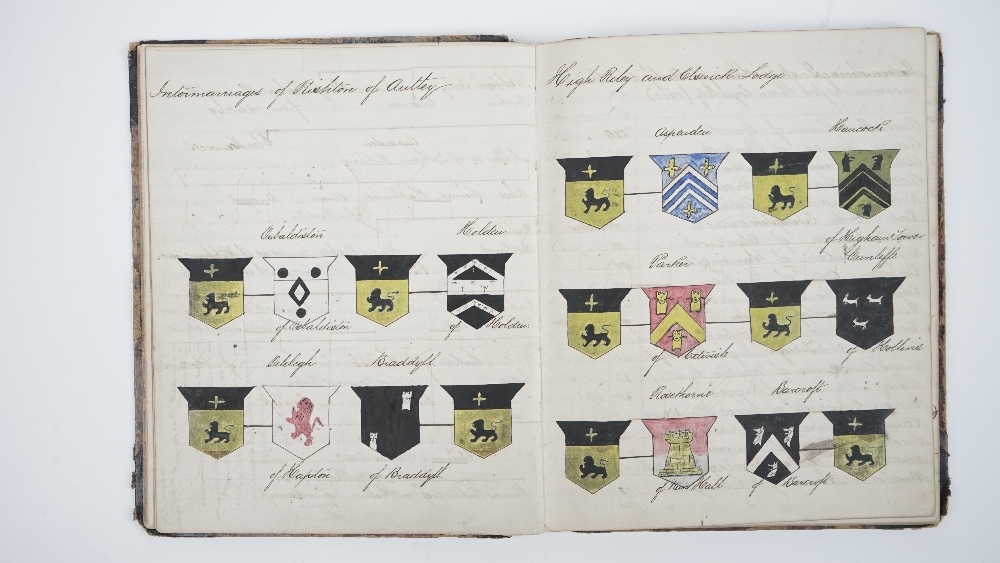 Intermarriages of Rishton of Antley
Osbaldiston
Holden
of Osbaldiston
of Holden
Braddyll.
of Hapton
of Braddyll.
High Riley and Elswick Lodge
Aspenden
Hancock
of Higham Tower
Parker
Cunliffe
of Extwistle
of Hollins
Rosethorne
Barcroft
of Hall
of Barcroft